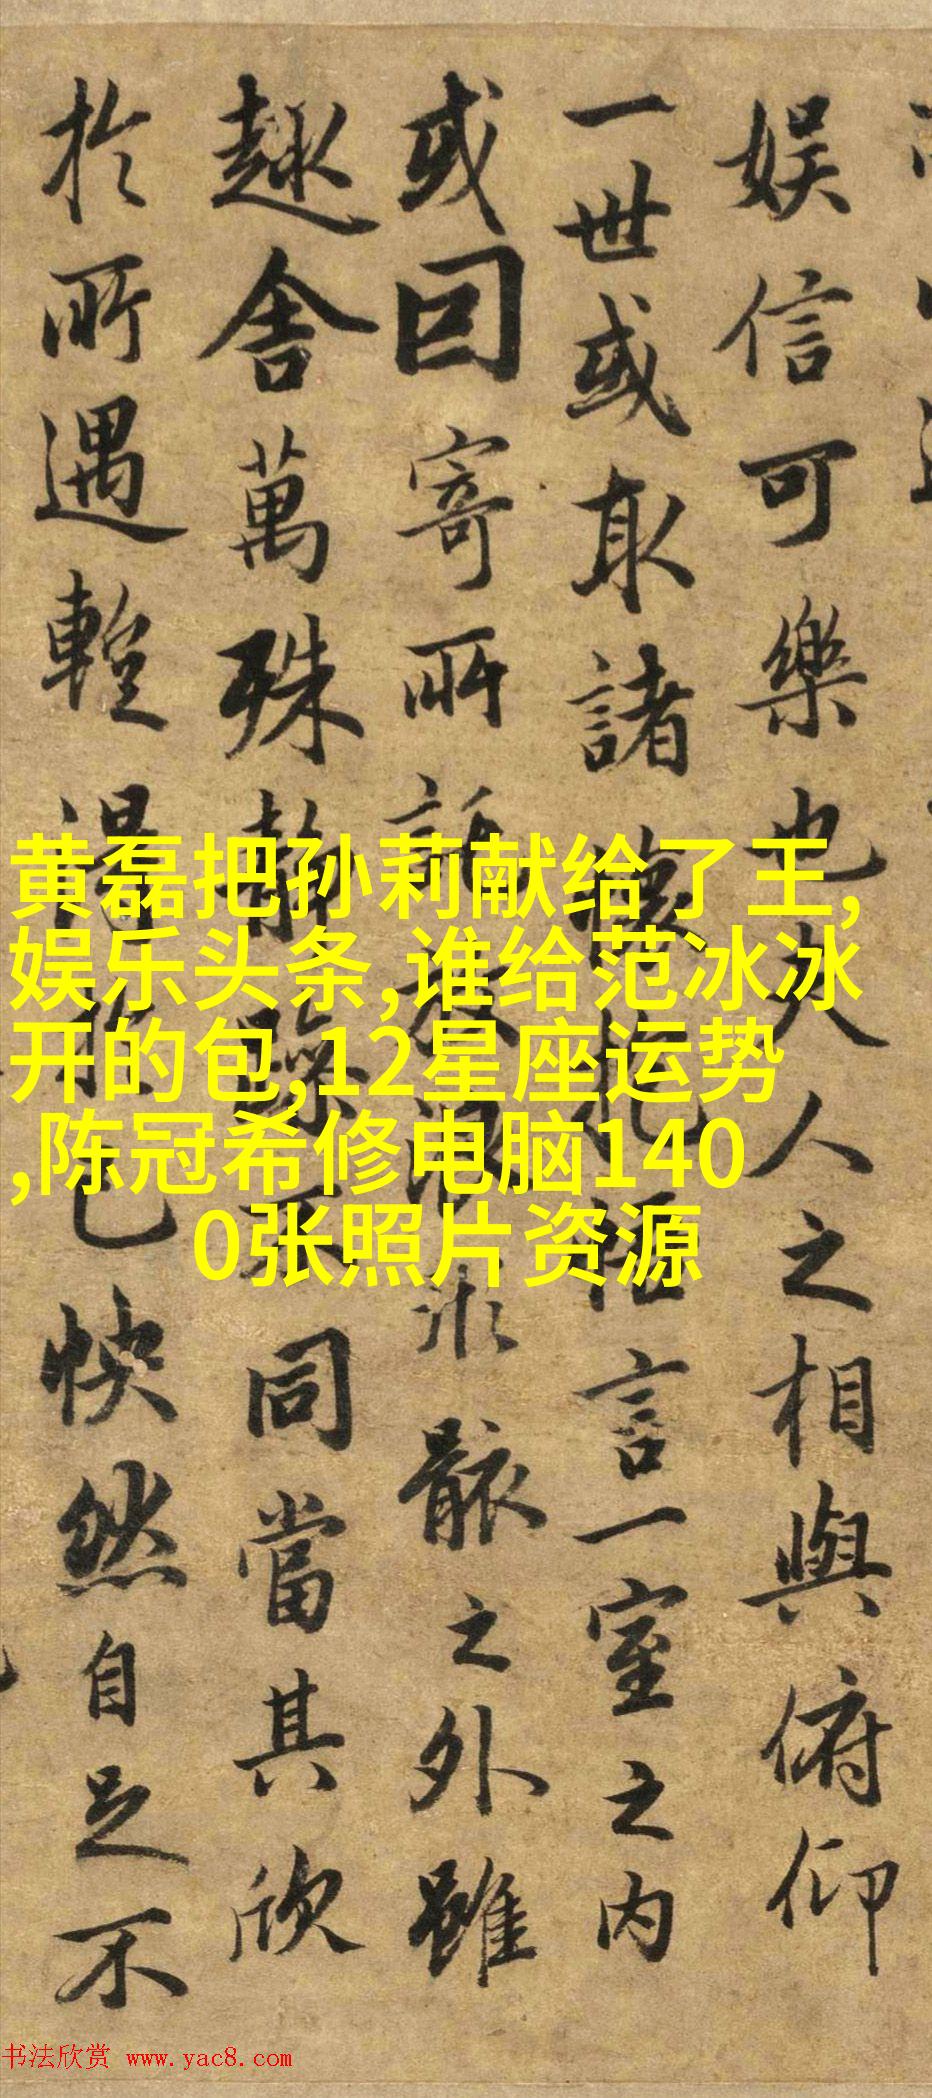 娱信可樂也夫人之相與俯仰
一世或取諸懷抱悟言一室之内
或囙寄所託放浪形骸之外雖
趣舍萬殊靜躁不同當其欣
於所遇暫得於己快然自足不
黄磊把孙莉献给了王,
娱乐头条,谁给范冰冰
开的包,12星座运势
,陈冠希修电脑140
0张照片资源
书法欣赏 www.yac8.com